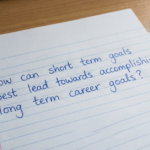 ow can short term goals
est lead towards accomplishi
long term career goals?